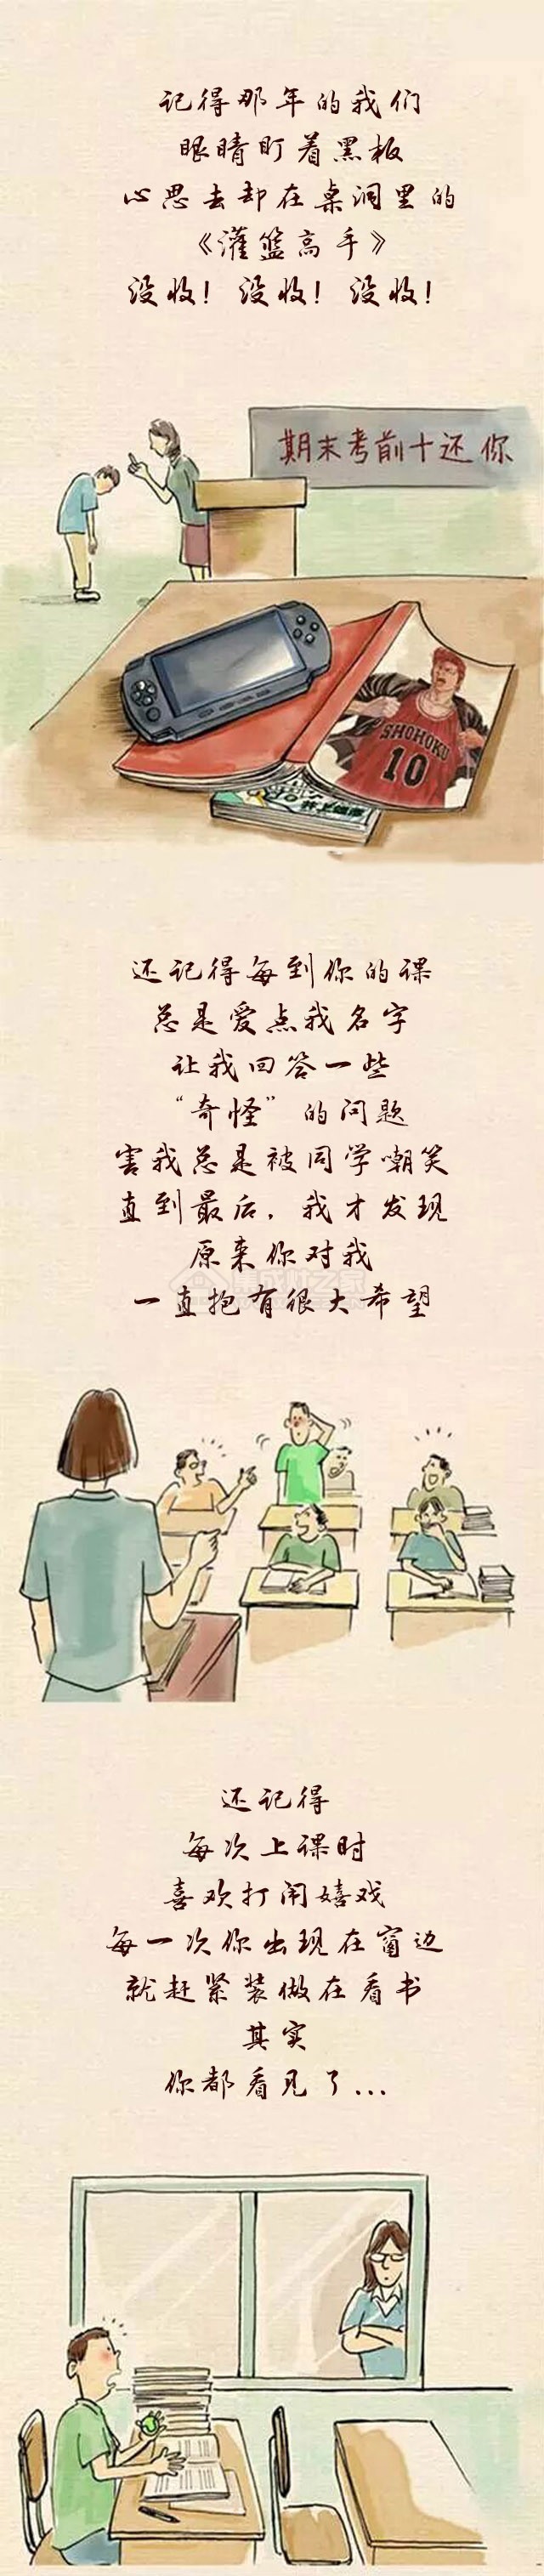 记得那年的我们
眼睛盯着黑板
心思去却在桌洞里的
《灌篮高手》
没收！没收！没收！
期末考前十还你
SHOHOKU
10
还记得每到你的课
总是爱点我名字
让我回答一些
“奇怪”的问题
害我总是被同学嘲笑
直到最后，我才发现
原来你对我
一直抱有很大希望
还记得
每次上课时
喜欢打闹嬉戏
每一次你出现在窗边
就赶紧装做在看书
其实
你都看见了...